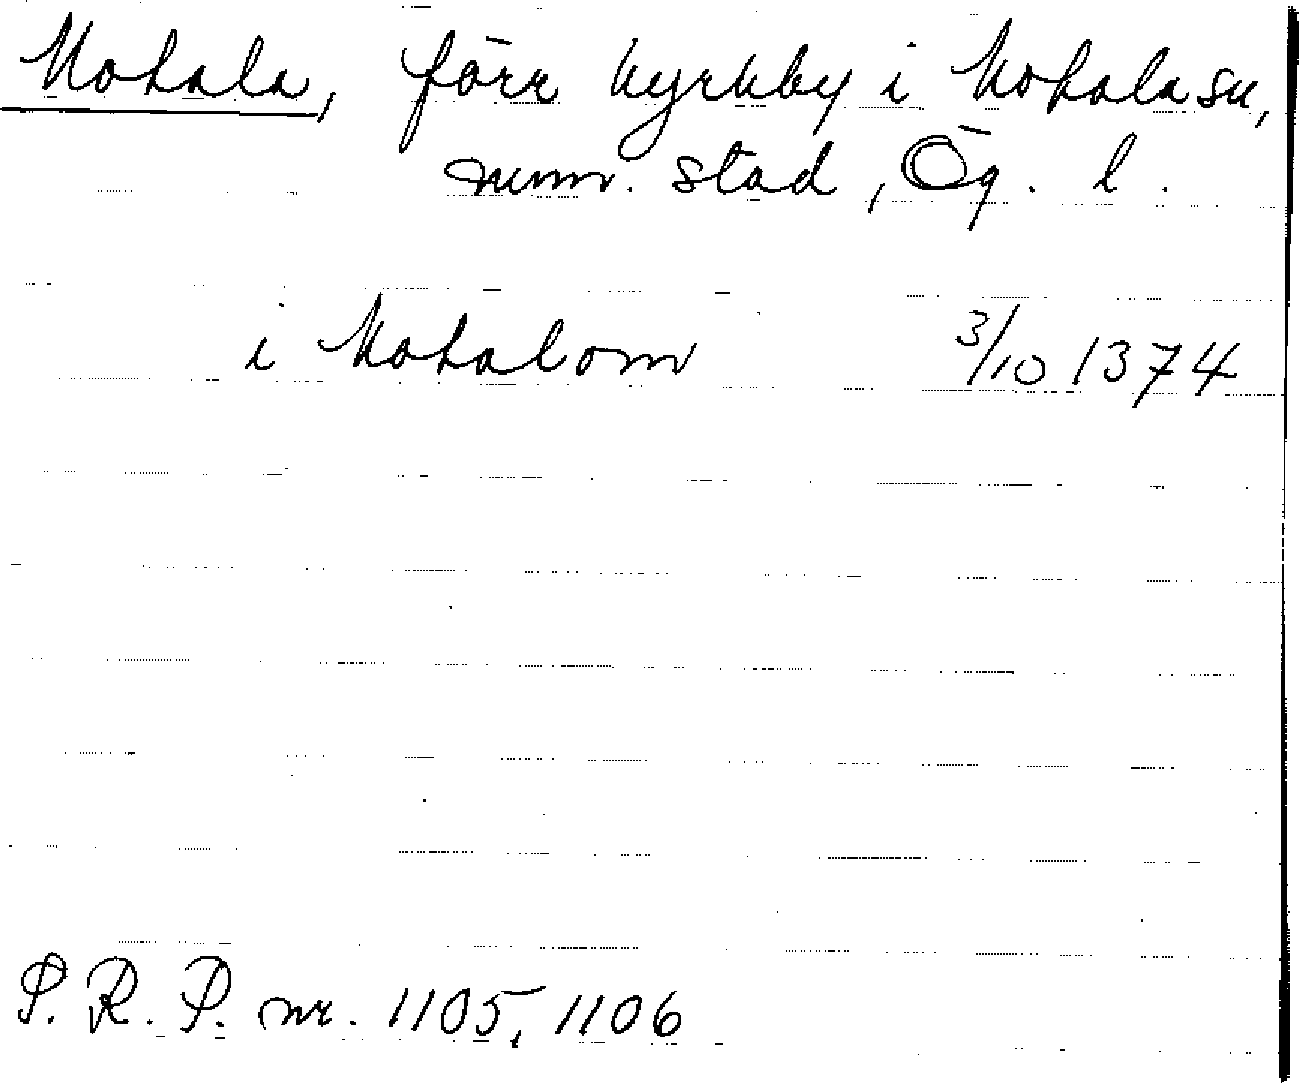 Motala, förr kyrkby i Motala sn,
numr. stad, Ög. l.
i Motalom 3/10 1374
S. R. P. nr. 1105, 1106